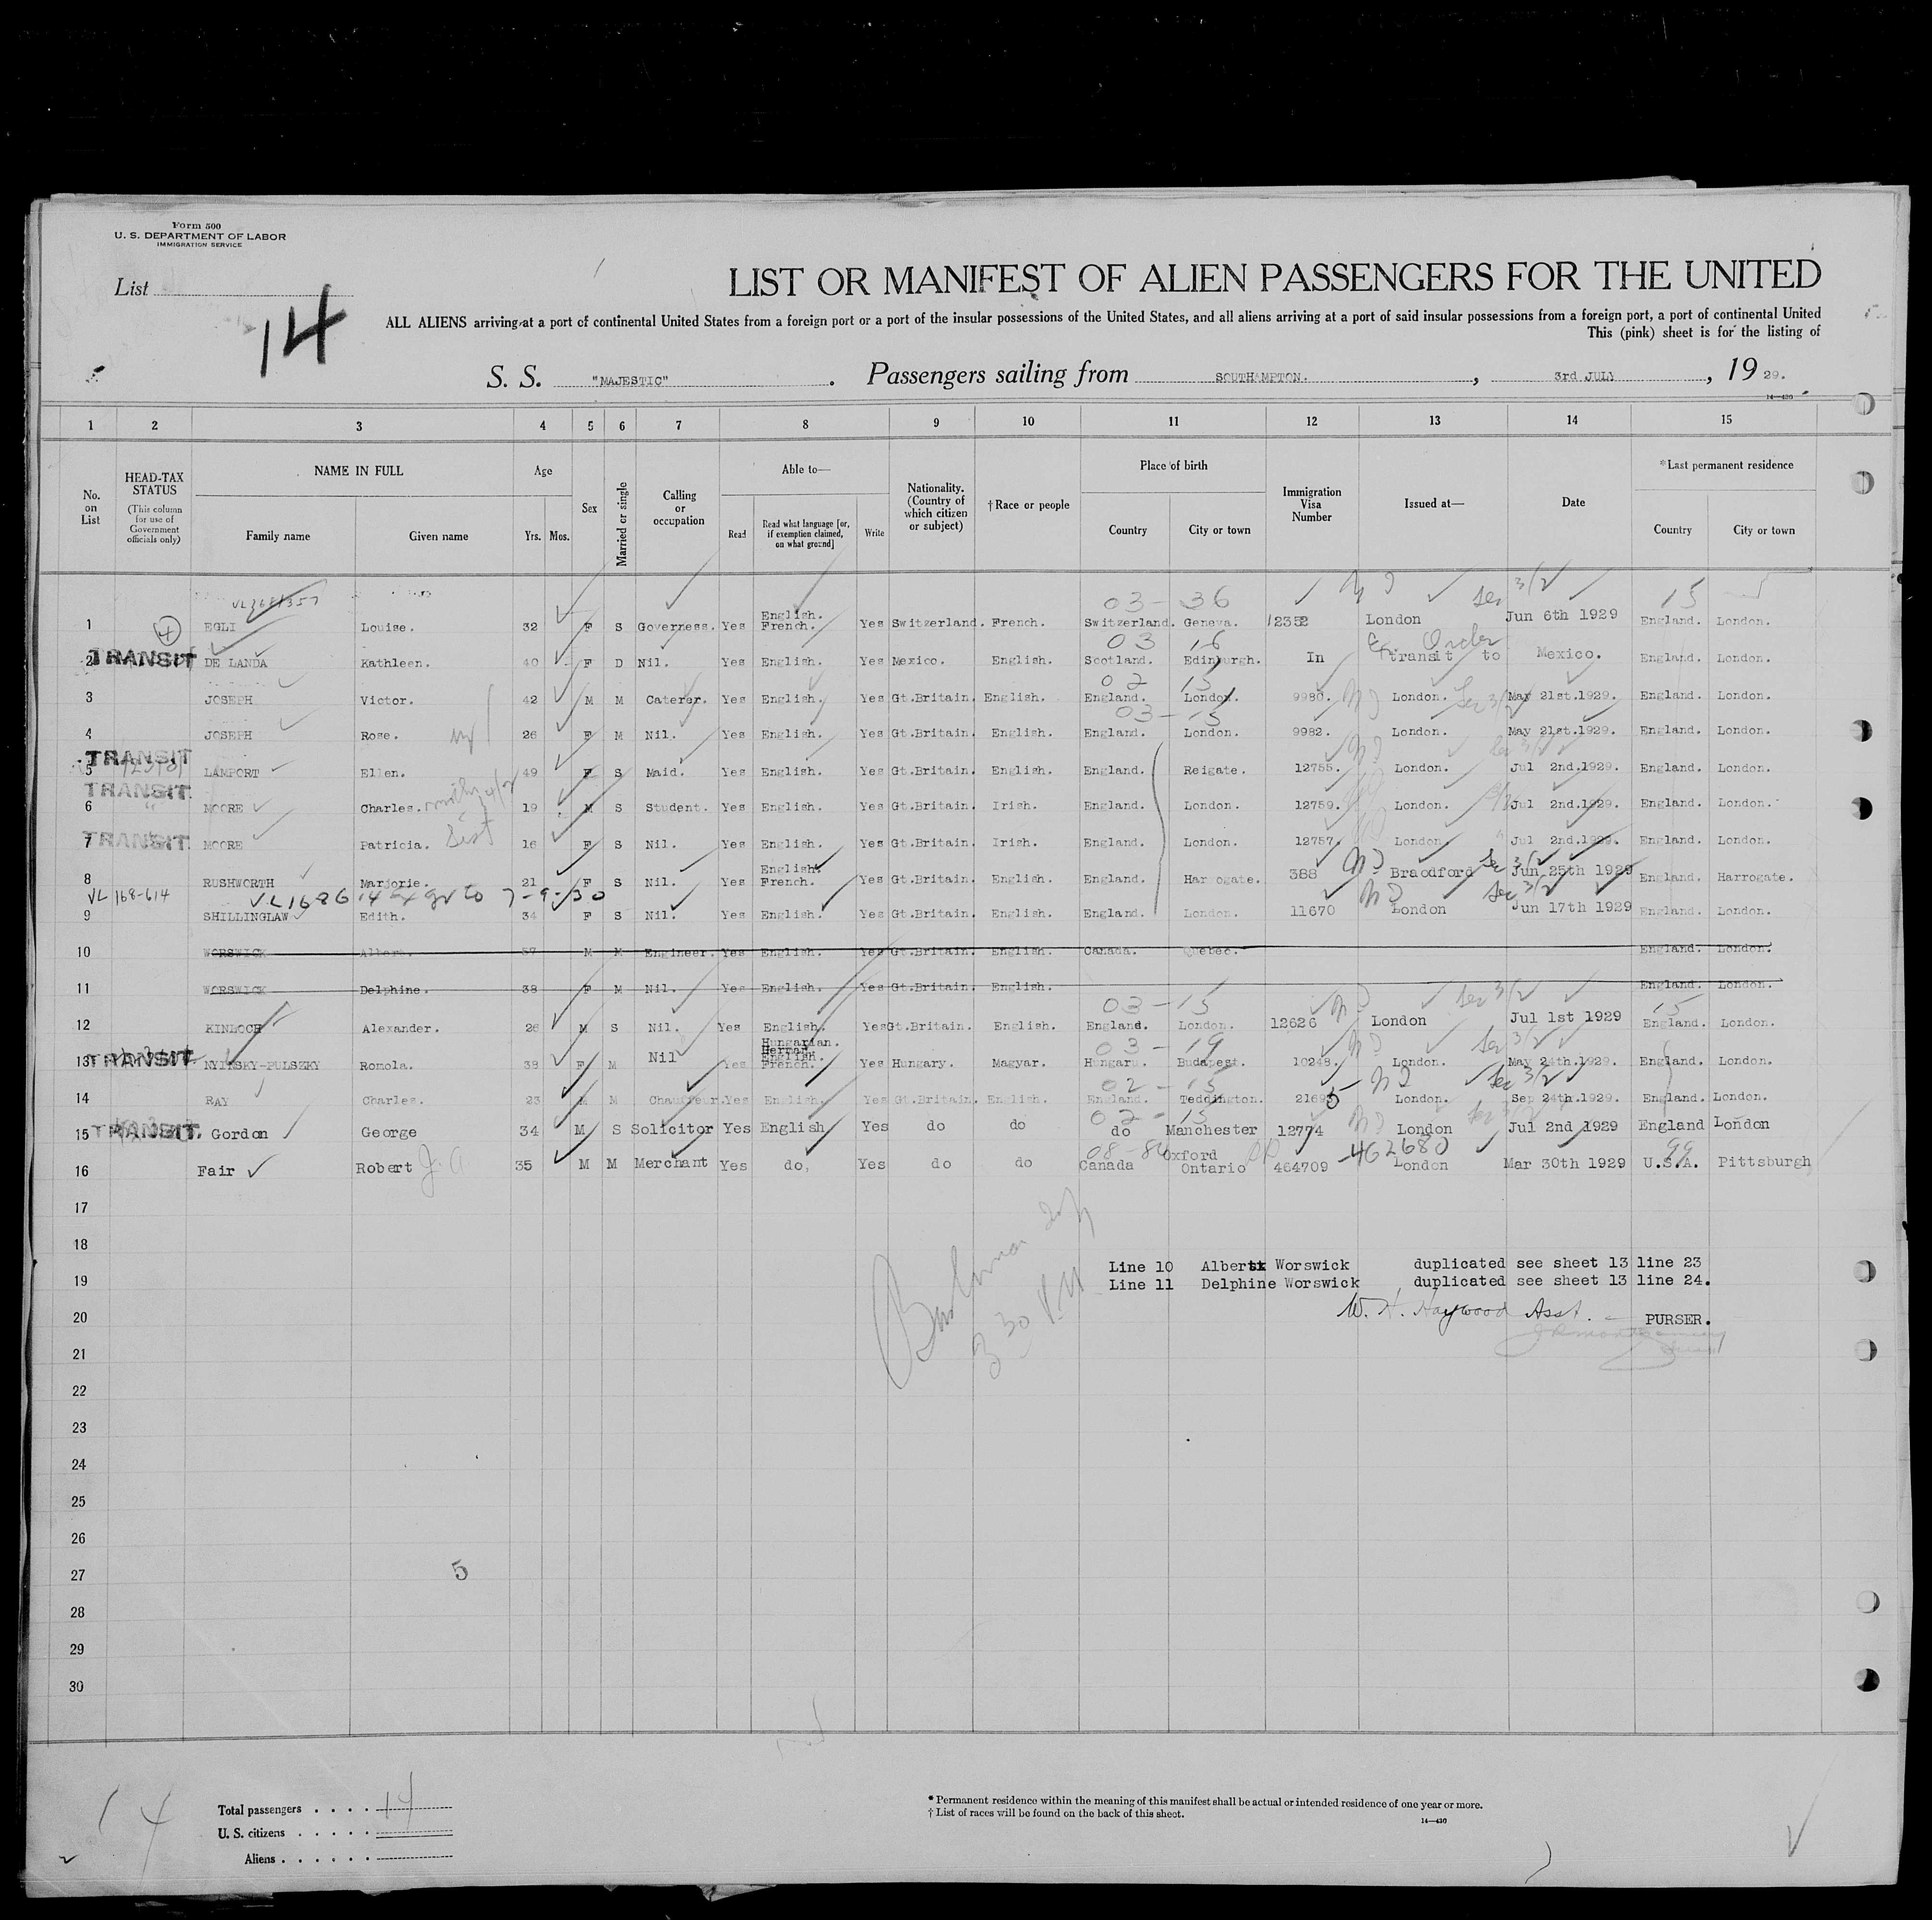 Form 500
U. S. DEPARTMENT OF LABOR
IMMIGRATION SERVICE
List
14
LIST OR MANIFEST OF ALIEN PASSENGERS FOR THE UNITED
ALL ALIENS arriving at a port of continental United States from a foreign port or a port of the insular possessions of the United States, and all aliens arriving at a port of said insular possessions from a foreign port, a port of continental United
This (pink) sheet is for the listing of
S. S. "MAJESTIC" . Passengers sailing from SOUTHAMPTON. , 3rd JULY , 19 29.
14—430
1 2 3 4 5 6 7 8 9 10 11 12 13 14 15
No. on List
HEAD-TAX STATUS (This column for use of Government officials only)
NAME IN FULL Family name Given name
Age Yrs. Mos.
Sex
Married or single
Calling or occupation
Able to— Read Read what language [or, if exemption claimed, on what ground] Write
Nationality. (Country of which citizen or subject)
†Race or people
Place of birth Country City or town
Immigration Visa Number
Issued at—
Date
*Last permanent residence Country City or town
03 - 36 15
1 4 EGLI Louise. 32 F S Governess. Yes English. French. Yes Switzerland. French. Switzerland. Geneva. 12352 London Jun 6th 1929 England. London.
03 16
2 TRANSIT DE LANDA Kathleen. 40 F D Nil. Yes English. Yes Mexico. English. Scotland. Edinburgh. In transit to Mexico. England. London.
02 15
3 JOSEPH Victor. 42 M M Caterer. Yes English. Yes Gt.Britain. English. England. London. 9980. London. May 21st.1929. England. London.
03 - 15
4 JOSEPH Rose. 26 F M Nil. Yes English. Yes Gt.Britain. English. England. London. 9982. London. May 21st.1929. England. London.
TRANSIT
5 LAMPORT Ellen. 49 F S Maid. Yes English. Yes Gt.Britain. English. England. Reigate. 12755. London. Jul 2nd.1929. England. London.
TRANSIT
6 MOORE Charles. 19 M S Student. Yes English. Yes Gt.Britain. Irish. England. London. 12759. London. Jul 2nd.1929. England. London.
TRANSIT
7 MOORE Patricia. 16 F S Nil. Yes English. Yes Gt.Britain. Irish. England. London. 12757. London. Jul 2nd.1929. England. London.
8 RUSHWORTH Marjorie. 21 F S Nil. Yes English. French. Yes Gt.Britain. English. England. Harrogate. 388 Braodford Jun 25th 1929 England. Harrogate.
VL 168-614
7-9-30
9 SHILLINGLAW Edith. 34 F S Nil. Yes English. Yes Gt.Britain. English. England. London. 11670 London Jun 17th 1929 England. London.
10 WORSWICK Albert. 37 M M Engineer. Yes English. Yes Gt.Britain. English. Canada. Quebec. England. London.
11 WORSWICK Delphine. 38 F M Nil. Yes English. Yes Gt.Britain. English. England. London.
03 - 15 15
12 KINLOCH Alexander. 26 M S Nil. Yes English. Yes Gt.Britain. English. England. London. 12626 London Jul 1st 1929 England. London.
03 - 19
13 TRANSIT NYINSKY-PULSZKY Romola. 38 F M Nil Yes Hungarian. German English. French. Yes Hungary. Magyar. Hungary. Budapest. 10248. London. May 24th.1929. England. London.
02 - 15
14 RAY Charles. 23 M M Chauffeur. Yes English. Yes Gt.Britain. English. England. Teddington. 21695 London. Sep 24th.1929. England. London.
02 - 15
15 TRANSIT. Gordon George 34 M S Solicitor Yes English Yes do do do Manchester 12774 London Jul 2nd 1929 England London
08 - 84 462680 99
16 Fair Robert J. A 35 M M Merchant Yes do, Yes do do Canada Oxford Ontario 464709 London Mar 30th 1929 U.S.A. Pittsburgh
17
18
Line 10 Albert Worswick duplicated see sheet 13 line 23
19
Line 11 Delphine Worswick duplicated see sheet 13 line 24.
W. H. Haywood Asst. PURSER.
20
3 30 P.M
21
22
23
24
25
26
27
5
28
29
30
14
Total passengers . . . . 14
U. S. citizens . . . . .
Aliens . . . . . .
* Permanent residence within the meaning of this manifest shall be actual or intended residence of one year or more.
† List of races will be found on the back of this sheet.
14—430